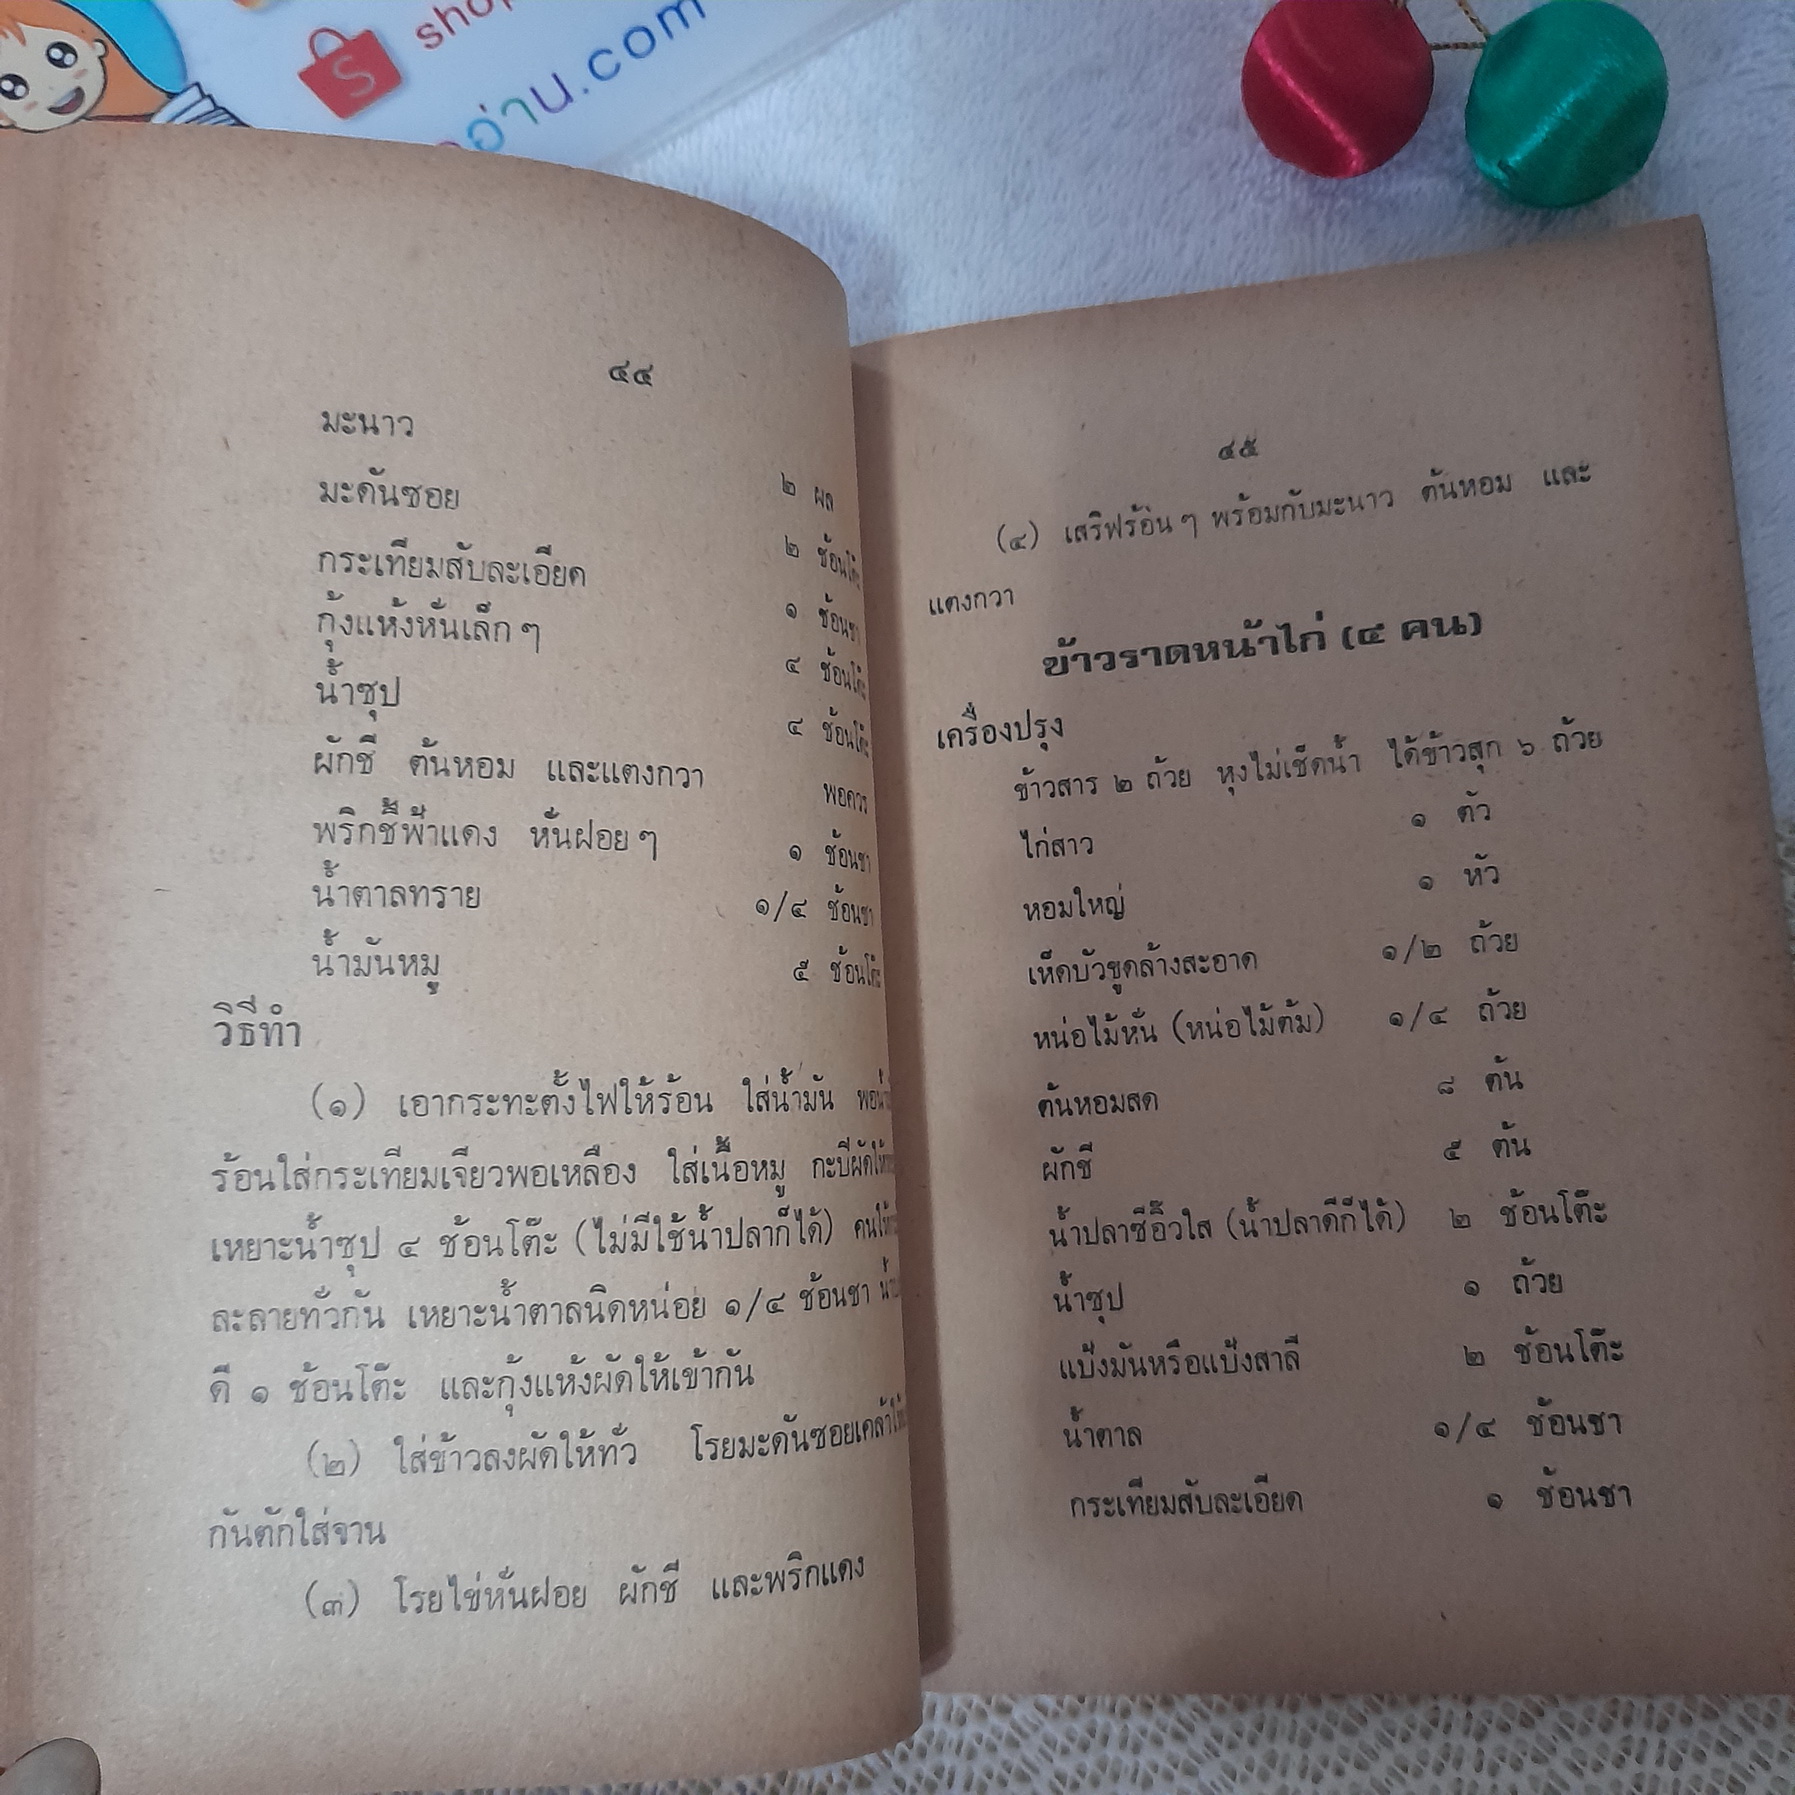 อ่าน.com
๔๔
มะนาว ๒ ผล
มะดันซอย ๒ ช้อนโต๊ะ
กระเทียมสับละเอียด ๑ ช้อนชา
กุ้งแห้งหั่นเล็กๆ ๔ ช้อนโต๊ะ
น้ำซุป ๔ ช้อนโต๊ะ
ผักชี ต้นหอม และแตงกวา พอควร
พริกชี้ฟ้าแดง หั่นฝอยๆ ๑ ช้อนชา
น้ำตาลทราย ๑/๔ ช้อนชา
น้ำมันหมู ๕ ช้อนโต๊ะ
วิธีทำ
(๑) เอากระทะตั้งไฟให้ร้อน ใส่น้ำมัน
ร้อนใส่กระเทียมเจียวพอเหลือง ใส่เนื้อหมู กะปิผัดให้
เหยาะน้ำซุป ๔ ช้อนโต๊ะ (ไม่มีใช้น้ำปลาก็ได้) คนให้
ละลายทั่วกัน เหยาะน้ำตาลนิดหน่อย ๑/๔ ช้อนชา
ดี ๑ ช้อนโต๊ะ และกุ้งแห้งผัดให้เข้ากัน
(๒) ใส่ข้าวลงผัดให้ทั่ว โรยมะดันซอยเคล้า
กันตักใส่จาน
(๓) โรยไข่หั่นฝอย ผักชี และพริกแดง
๔๕
(๔) เสริฟร้อนๆ พร้อมกับมะนาว ต้นหอม และ
แตงกวา
ข้าวราดหน้าไก่ (๔ คน)
เครื่องปรุง
ข้าวสาร ๒ ถ้วย หุงไม่เช็ดน้ำ ได้ข้าวสุก ๖ ถ้วย
ไก่สาว ๑ ตัว
หอมใหญ่ ๑ หัว
เห็ดบัวขูดล้างสะอาด ๑/๒ ถ้วย
หน่อไม้หั่น (หน่อไม้ต้ม) ๑/๔ ถ้วย
ต้นหอมสด ๘ ต้น
ผักชี ๕ ต้น
น้ำปลาซีอิ๊วใส (น้ำปลาดีก็ได้) ๒ ช้อนโต๊ะ
น้ำซุป ๑ ถ้วย
แป้งมันหรือแป้งสาลี ๒ ช้อนโต๊ะ
น้ำตาล ๑/๔ ช้อนชา
กระเทียมสับละเอียด ๑ ช้อนชา